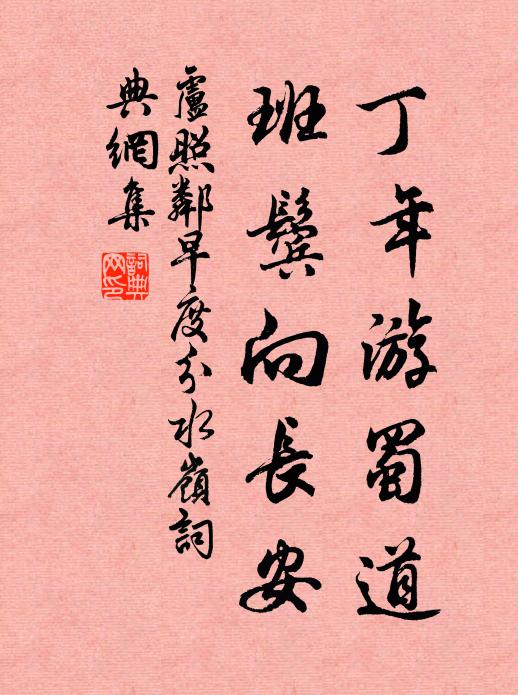 丁年游蜀道
班鬓向長安
盧照鄰早度分水嶺詞
典網集
詞典網印